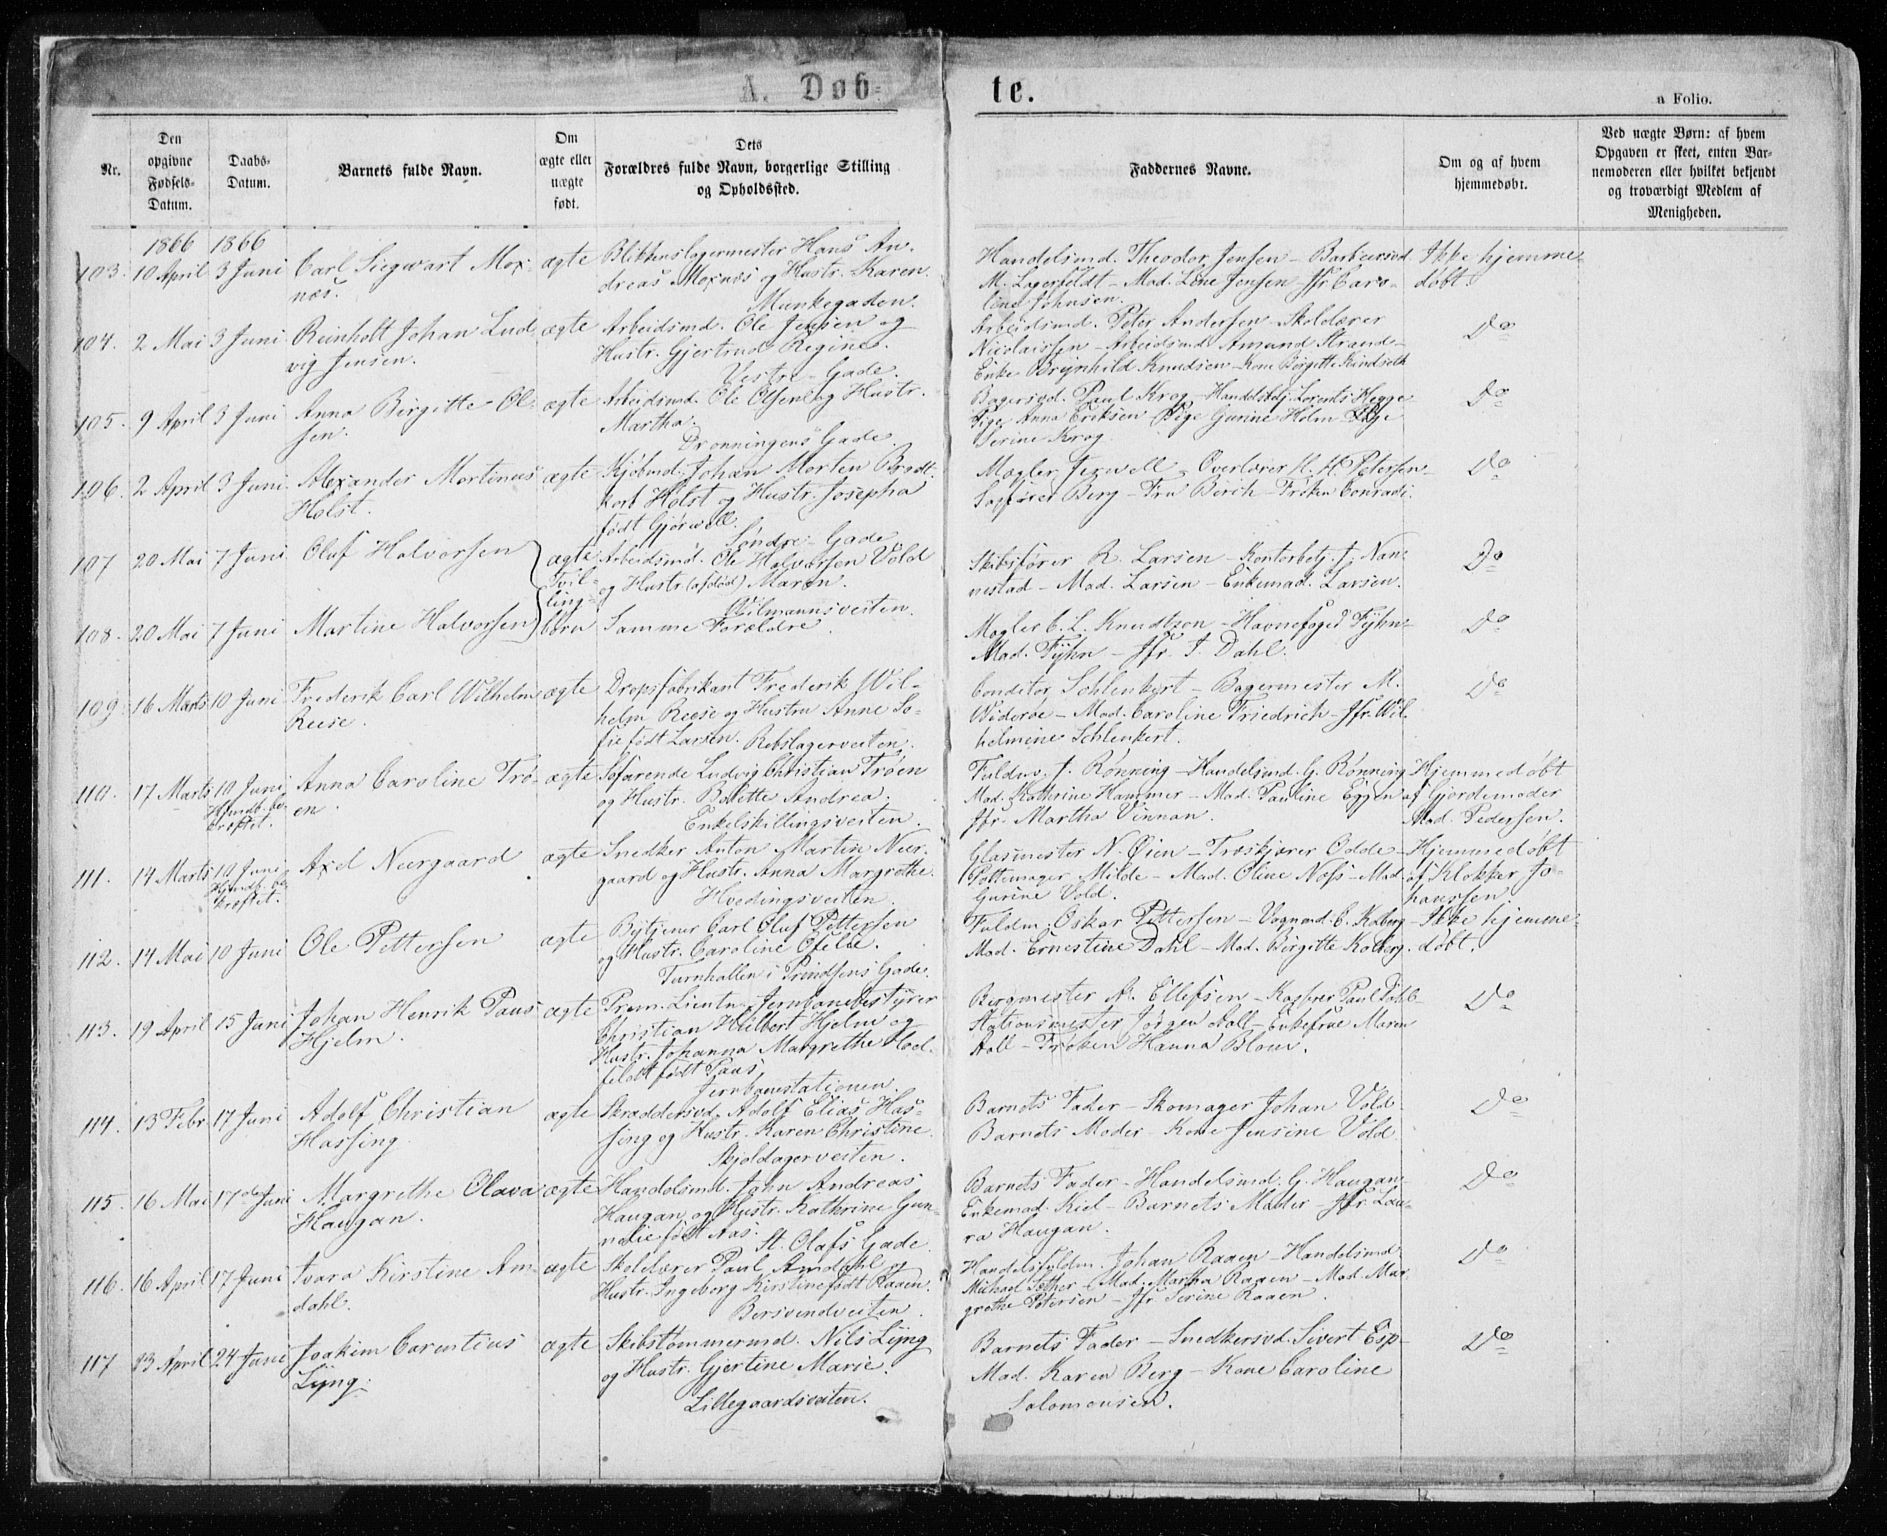 A. Døbte.
a Folio.
Nr.
Den opgivne Fødsels-Datum.
Daabs-Datum.
Barnets fulde Navn.
Om ægte eller uægte født.
Dets Forældres fulde Navn, borgerlige Stilling og Opholdssted.
Faddernes Navne.
Om og af hvem hjemmedøbt.
Ved uægte Børn: af hvem Opgaven er skeet, enten Barnemoderen eller hvilket bekjendt og troværdigt Medlem af Menigheden.
1866 1866
103. 10 April 3 Juni Carl Siegwart Mox-
næs.
ægte
Blikkenslagermester Hans An-
dreas Moxnæs og Hustr. Karen.
Munkegaden.
Handelsmd. Theodor Jensen – Barbeersvd
M. Lagerfeldt – Mad. Line Jensen – Jfr Caro-
line Johnsen.
Ikke hjemme-
døbt.
104. 2 Mai 3 Juni Reinholt Johan Lud-
vig Jensen.
ægte
Arbeidsmd. Ole Jensen og
Hustr. Gjertrud Regine.
Vestre Gade.
Arbeidsmd. Peter Andersen – Skolelærer
Nicolaissen – Arbeidsmd Amund Strand –
Enke Brynhild Knudsen – Kone Birgitte Kindseth
Do
105. 9 April 3 Juni Anna Birgitte Ol-
sen.
ægte
Arbeidsmd. Ole Olsen og Hustr.
Martha.
Dronningens Gade
Bagersvd. Paul Krog – Handelsbetj. Lorents Hegge
Pige Anna Eriksen – Pige Gurine Holm – Pige
Serine Krog.
Do
106. 2 April 3 Juni Alexander Martinus
Holst.
ægte
Kjøbmd. Johan Morten Brodt-
korb Holst og Hustr. Josepha
født Gjørwell.
Søndre Gade
Mægler Jerwell – Overlærer H. H. Petersen –
Sagfører Berg – Fru Birch – Frøken Conradi.
Do
107 20 Mai 7 Juni Oluf Halvorsen
ægte
Tvil-
ling-
børn
Arbeidsmd. Ole Halvorsen Vold
og Hustr. (afdød) Maren.
Wilmannsveiten.
Skibsfører R. Larsen – Kontorbetj. J. Nan-
nestad – Mad. Larsen – Enkemad. Larsen.
Do
108. 20 Mai 7 Juni Martine Halvorsen
Samme Forældre.
Mægler C. L. Knudtzon – Havnefoged Fyhn –
Mad. Fyhn – Jfr. J. Dahl.
Do
109. 16 Marts 10 Juni Frederik Carl Wilhelm
Reese.
ægte
Dropsfabrikant Frederik Wil-
helm Reese og Hustru Anne So-
fie født Larsen. Rebslagerveiten.
Conditor Schlenkert – Bagermester M.
Widerøe – Mad. Caroline Friedrich – Jfr. Wil-
helmine Schlenkert.
Do
110. 17 Marts 10 Juni
Hjmdb. be-
kræftet.
Anna Caroline Trø-
en.
ægte
Søfarende Ludvig Christian Trøen
og Hustr. Bolette Andrea.
Enkelskillingsveiten.
Fuldm. J. Rønning – Handelsmd. G. Rønning
Mad. Kathrine Hammer – Mad. Pauline Eggen
Jfr. Martha Vinnan.
Hjemmedøbt
af Gjordemoder
Mad. Pedersen.
111. 14 Marts 10 Juni
Hjmdb. be-
kræftet.
Axel Neergaard
ægte
Snedker Anton Martin Neer-
gaard og Hustr. Anna Margrethe.
Hvedingsveiten.
Glasmester N. Øien – Træskjærer Odde –
Pottemager Milde – Mad. Oline Næss – Mad.
Gurine Vold.
Hjemmedøbt
af Klokker Jo-
hanssen
112. 14 Mai 10 Juni Ole Pettersen
ægte
Bytjener Carl Oluf Pettersen
og Hustr. Caroline Ofelie.
Turnhallen i Prindsens Gade.
Fuldm. Oskar Pettersen – Vognmd. C. Kolberg –
Mad. Ernestine Dahl – Mad. Birgitte Kolberg.
Ikke hjemme-
døbt.
113. 19 April 15 Juni Johan Henrik Paus
Hjelm.
ægte
Prem. Lieutn. Jernbanebestyrer
Christian Hilbert Hjelm og
Hustr. Johanna Margrethe Hod-
feldt født Paus.
Jernbanestationen.
Bergmester A. Ellefsen – Kasserer Paul Dahl –
Stationsmester Jørgen Aall – Enkefrue Maren
Aall – Frøken Hanna Blom.
Do
114. 13 Febr. 17 Juni Adolf Christian
Hassing.
ægte
Skræddersvd. Adolf Elias Has-
sing og Hustr. Karen Christine.
Skjoldagerveiten.
Barnets Fader – Skomager Johan Vold.
Barnets Moder – Kone Jensine Vold
Do
115. 16 Mai 17de Juni Margrethe Olava
Haugan.
ægte
Handelsmd. John Andreas
Haugan og Hustr. Kathrine Gun-
nelie født Aas.
St. Olafs Gade
Barnets Fader – Handelsmd. G. Haugan –
Enkemad. Kiel – Barnets Moder – Jfr. Lau-
ra Haugan.
Do
116. 16 April 17 Juni Ivara Kirstine Am-
dahl.
ægte
Skolelærer Paul Amdahl og
Hustr. Ingeborg Kirstine født Raaen.
Bersvendveiten.
Handelsfuldm. Johan Raaen – Handelsmd.
Michael Sæther – Mad. Martha Raaen – Mad. Mar-
grethe Petersen – Jfr Serine Raaen.
Do
117 23 April 24 Juni Joakim Carentius
Lyng.
ægte
Skibstømmermd. Nils Lyng
og Hustr. Gjertine Marie.
Lillegaardsveiten.
Barnets Fader – Snedkersvd. Sivert Esp –
Mad. Karen Berg – Kone Caroline
Salomonsen.
Do